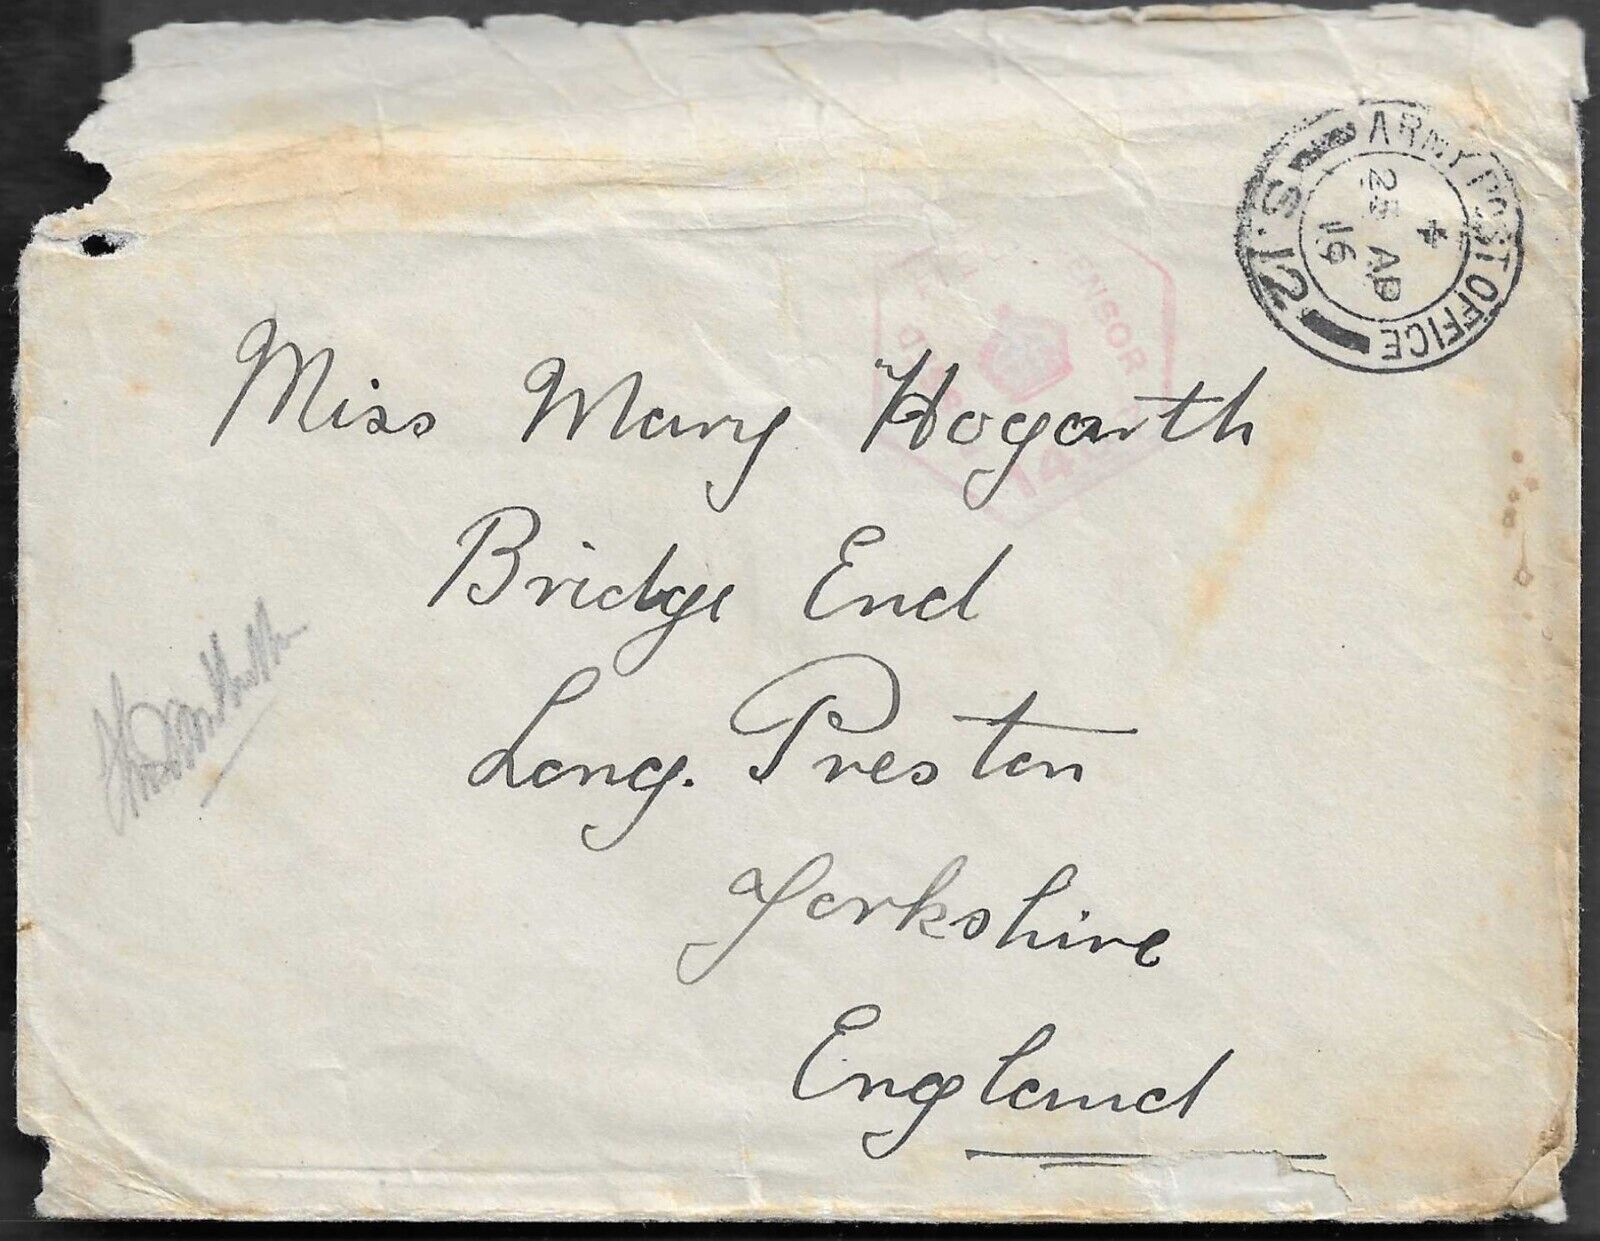 ARMY POST OFFICE
S.12
4
25 AP
16
CENSOR
Miss Mary Hogarth
Bridge End
Long. Preston
Yorkshire
England